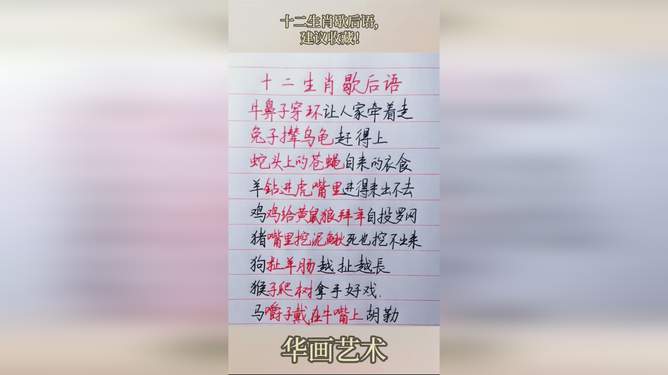 十二生肖歇后语,
建议收藏!
十二生肖歇后语
牛鼻子穿环让人家牵着走
兔子撵乌龟赶得上
蛇头上的苍蝇自来的衣食
羊钻进虎嘴里进得来出不去
鸡鸡给黄鼠狼拜年自投罗网
猪嘴里挖泥鳅死也挖不出来
狗扯羊肠越扯越長
猴子爬树拿手好戏.
马嚼子戴在牛嘴上胡勒
华画艺术